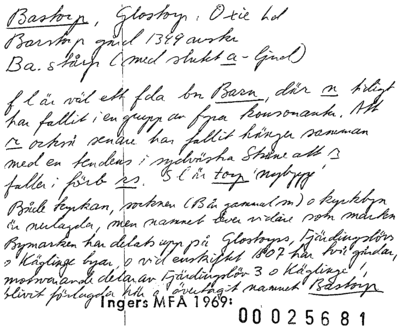 Bastorp, Glostorp, Oxie hd
Barstorp gård 1349 avskr
Ba.stårp (med slutet a-ljud)
f l är väl ett fda bn Barn, där n tidigt
har fallit i en grupp av fyra konsonanter. Att
r också senare har fallit hänger samman
med en tendens i sydvästra Skåne att
faller i förb rs. S l är torp 'nybygge'
Både kyrkan, socknen (B är gammal sn) o kyrkbyn
är nerlagda, men namnet lever vidare som marken
Bymarken har delats upp på Glostorps, Fjärdingslövs
o Käglinge byar, o vid enskiftet 1807 har två gårdar,
motsvarande delar av Fjärdingslöv 3 o Käglinge
blivit förlagda här o övertagit namnet Bastorp
Ingers MFA 1969:
00 025681